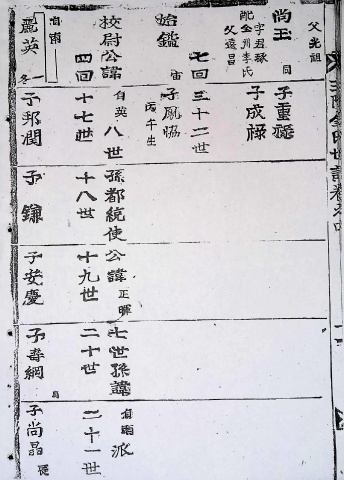 金氏世譜卷之四
父光祖
尚玉
字君琢
配全州李氏
父遠昌
子成祿
七回 三十二世
始鑑
子鳳協
丙午生
校尉公諱 自英 八世孫都統使公諱 正暉 七世孫諱 派
四回 十七世 十八世 十九世 二十世 二十一世
自南
麗英 子邦潤 子鎌 子安慶 子壽網 子尚晶